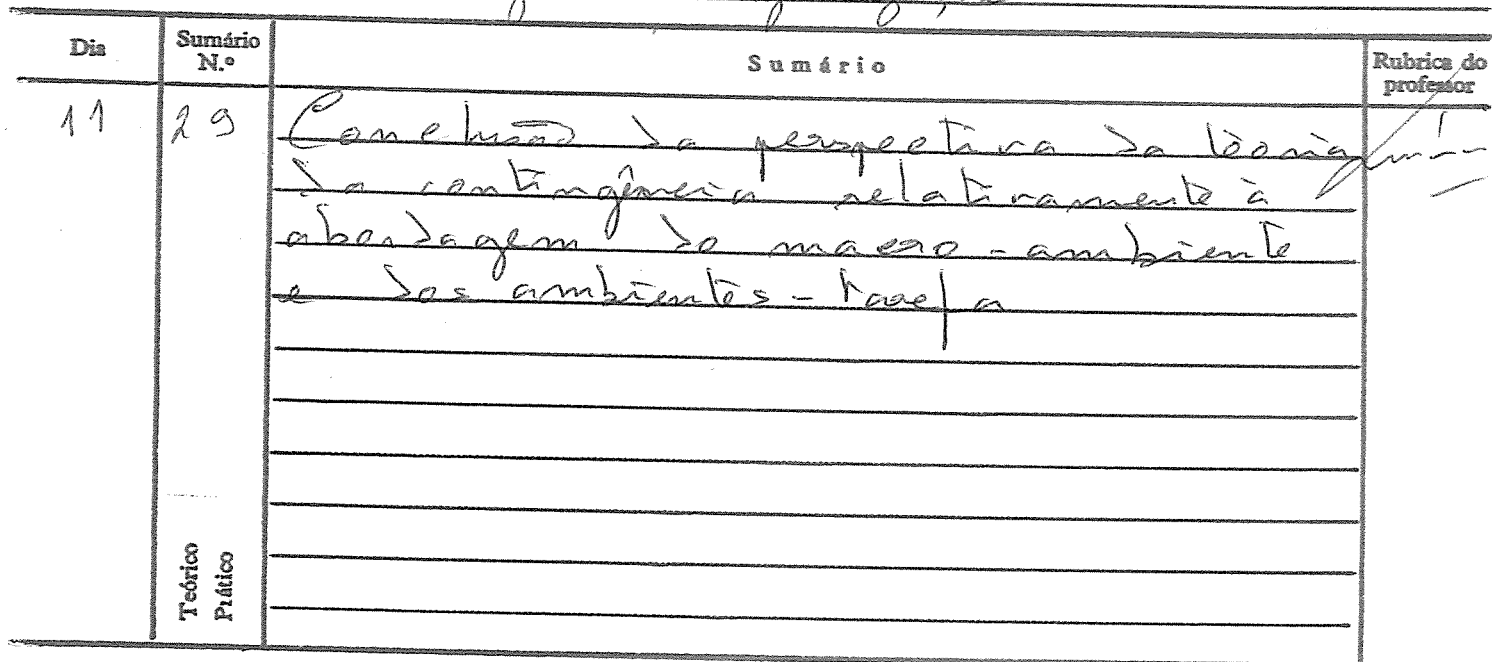 Dia
Sumário N.º
Sumário
Rubrica do professor
11
29
Conclusão da perspectiva da teoria
da contingência relativamente à
abordagem do macro-ambiente
e dos ambientes-tarefa
Teórico
Prático